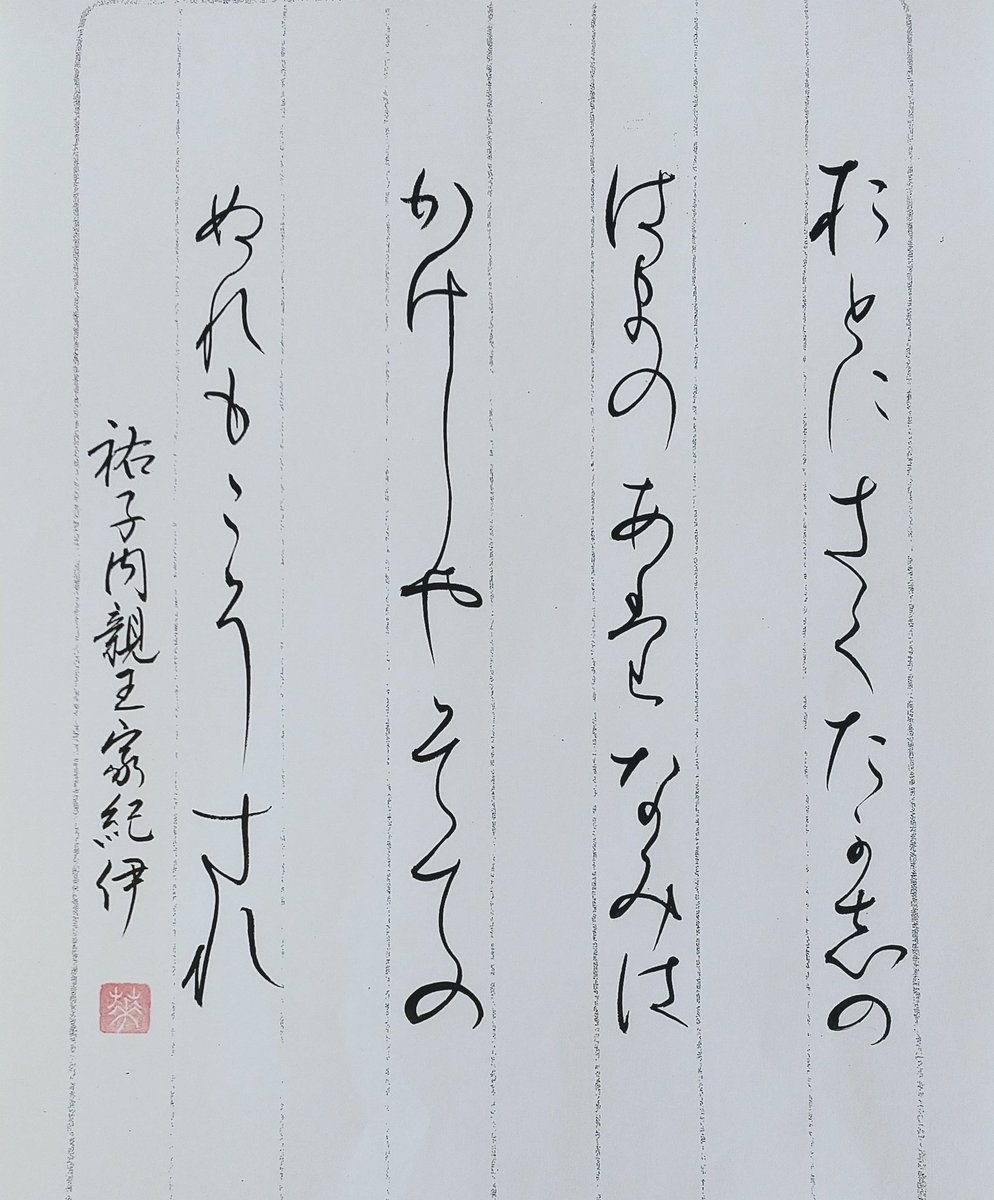 おとにきくたかしの
はまのあたなみは
かけしやそての
ぬれもこそすれ
祐子内親王家紀伊